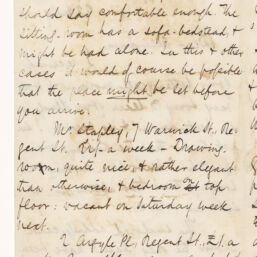 should say comfortable enough. The
sitting-room has a sofa-bedstead, &
might be had alone. In this & other
cases it would of course be possible
that the place might be let before
you arrive.
Mr. Stapley, 7 Warwick St. Re-
gent St. a week - Drawing
room, quite nice, & rather elegant
than otherwise, & bedroom top
floor: vacant on Saturday week
next.
2 Argyle Pl. Regent St. a